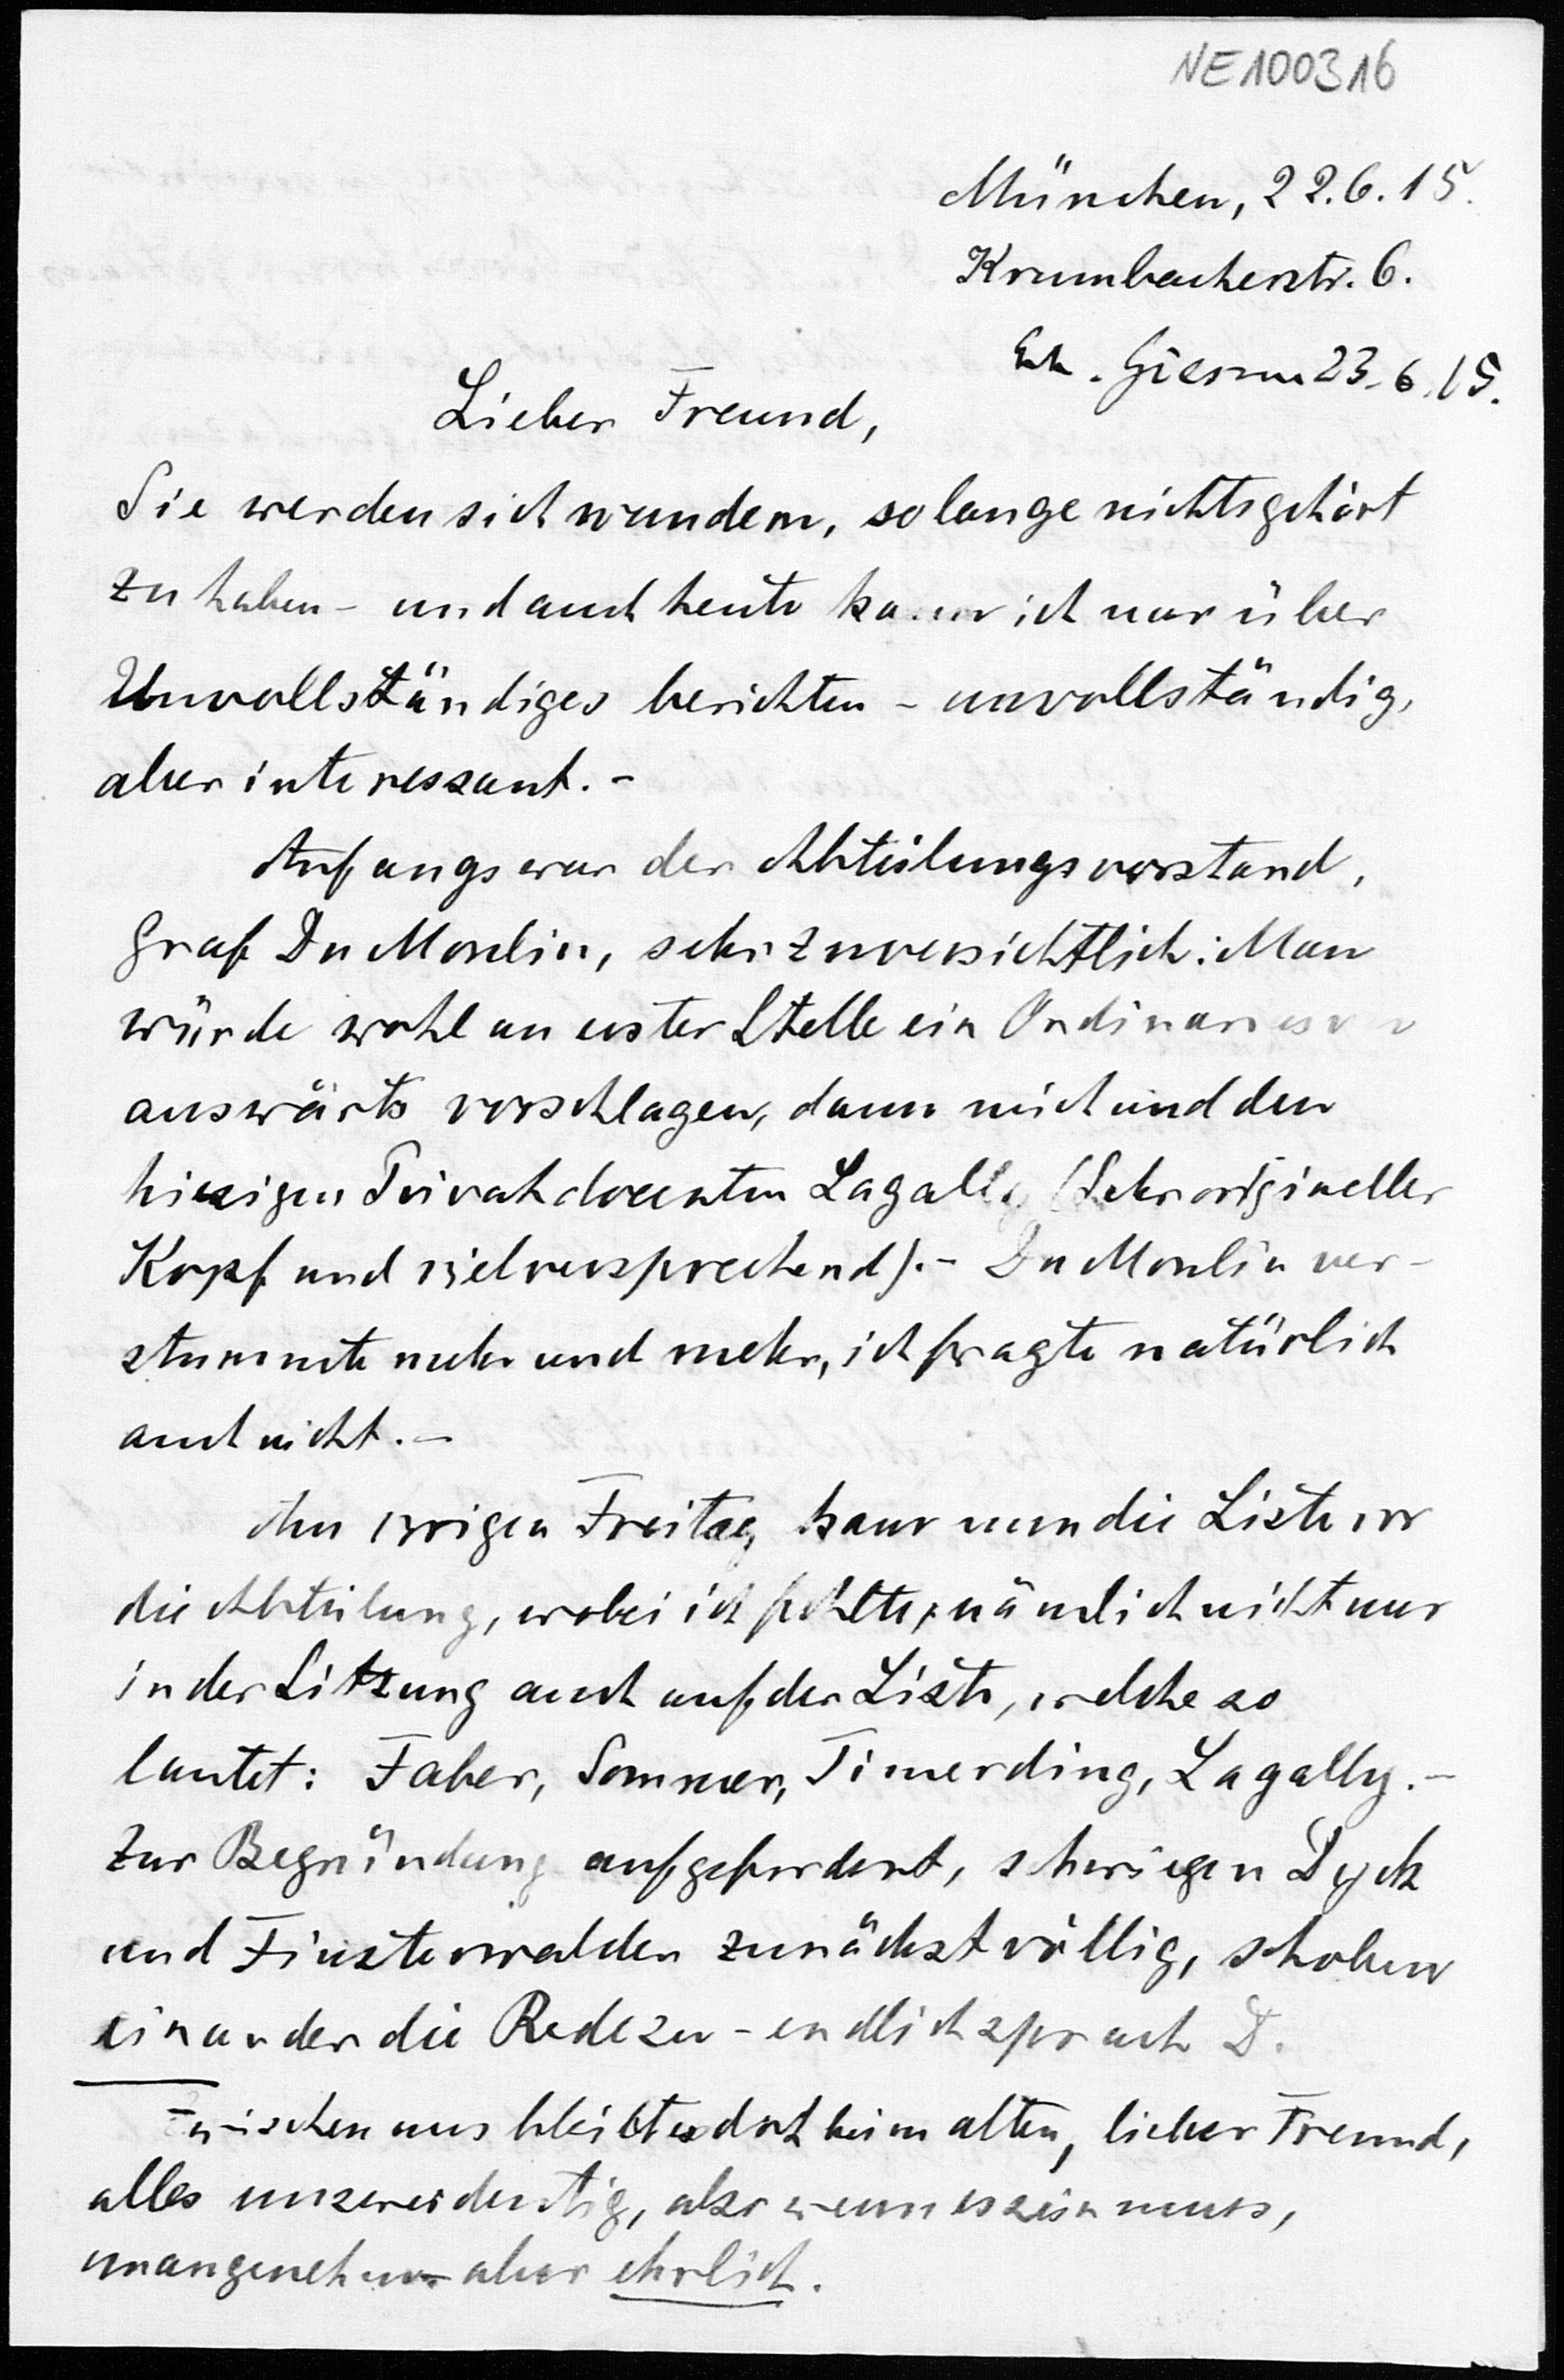 NE100316
München, 22.6.15.
Krumbacherstr. 6.
Erh. Giessen 23.6.15.
Lieber Freund,
Sie werden sich wundern, so lange nichts gehört
zu haben – und auch heute kann ich nur über
Unvollständiges berichten – unvollständig,
aber interessant. –
Anfangs war der Abteilungsvorstand,
Graf Du Moulin, sehr zuversichtlich: Man
würde wohl an erster Stelle ein Ordinarius von
auswärts vorschlagen, dann mich und den
hiesigen Privatdocenten Lagally (Sehr origineller
Kopf und vielversprechend). – Du Moulin ver-
stummte mehr und mehr, ich fragte natürlich
auch nicht. –
Am vorigen Freitag kam nun die Liste vor
die Abteilung, wobei ich fehlte, nämlich nicht nur
in der Sitzung auch auf der Liste, welche so
lautet: Faber, Sommer, Timerding, Lagally. –
Zur Begründung aufgefordert, schwiegen Dyck
und Finsterwalder zunächst völlig, schoben
einander die Rede zu – endlich sprach D.
Zwischen uns bleibt es doch beim alten, lieber Freund,
alles unzweideutig, also wenn es sein muss,
unangenehm – aber ehrlich.